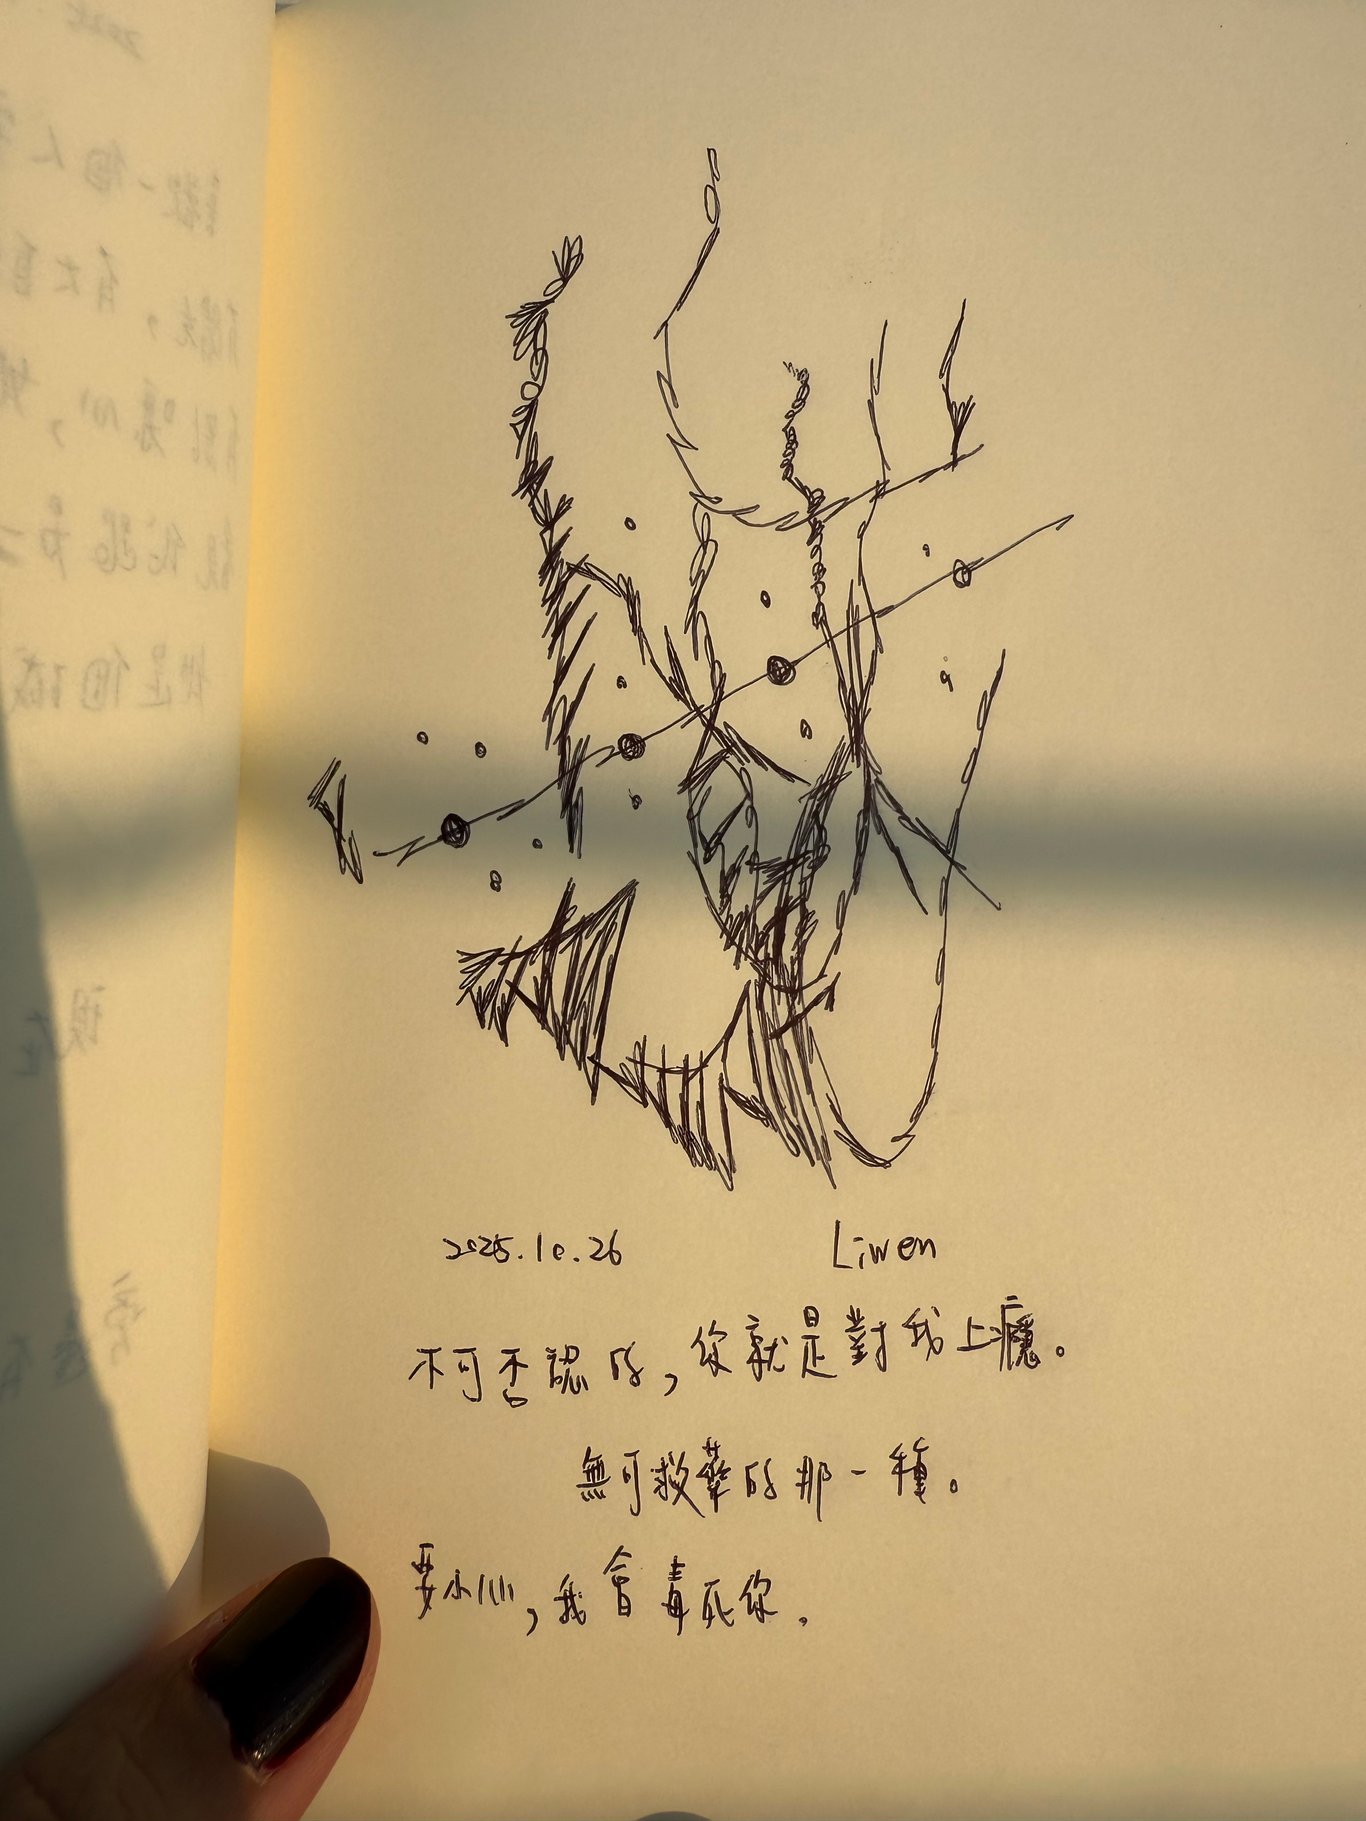 2025.10.26 Liwen
不可否認的,你就是對我上癮。
無可救藥的那一種。
要小心,我會毒死你.